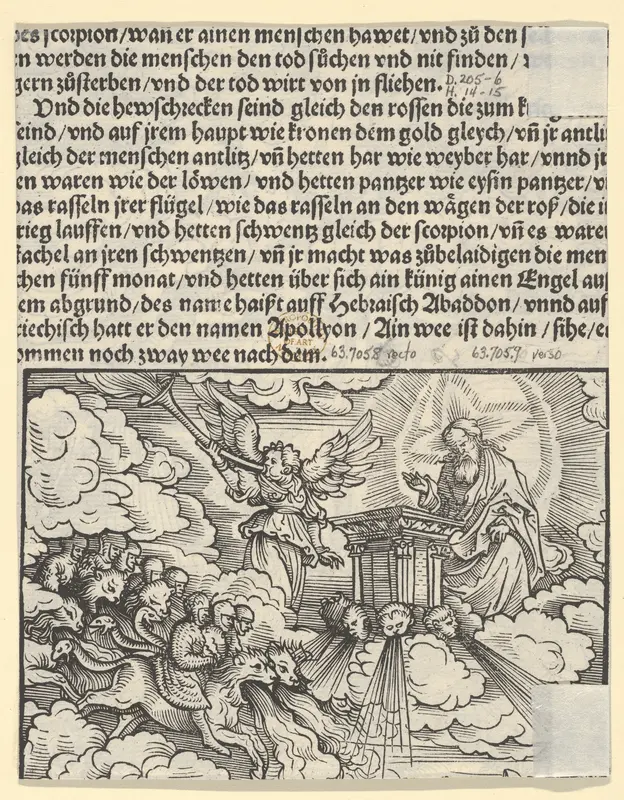 des scorpion/wañ er ainen menschen hawet/vnd zů den
en werden die menschen den tod sůchen vnd nit finden/
gern zůsterben/vnd der tod wirt von jn fliehen. D. 205-6
H. 14-15
Vnd die hewschrecken seind gleich den rossen die zum
seind/vnd auf jrem haupt wie kronen dem gold gleych/vñ jr antli
gleich der menschen antlitz/vñ hetten har wie weyber har/vnnd
en waren wie der löwen/vnd hetten pantzer wie eysin pantzer/
das rasseln jrer flügel/wie das rasseln an den wägen der roß/die
krieg lauffen/vnd hetten schwentz gleich der scorpion/vñ es ware
stachel an jren schwentzen/vñ jr macht was zůbelaidigen die men
chen fünff monat/vnd hetten über sich ain künig ainen Engel
em abgrund/des name haißt auff Hebraisch Abaddon/vnnd auf
riechisch hatt er den namen Apollyon/Ain wee ist dahin/sihe/
ommen noch zway wee nach dem. 63.7058 recto 63.7057 verso